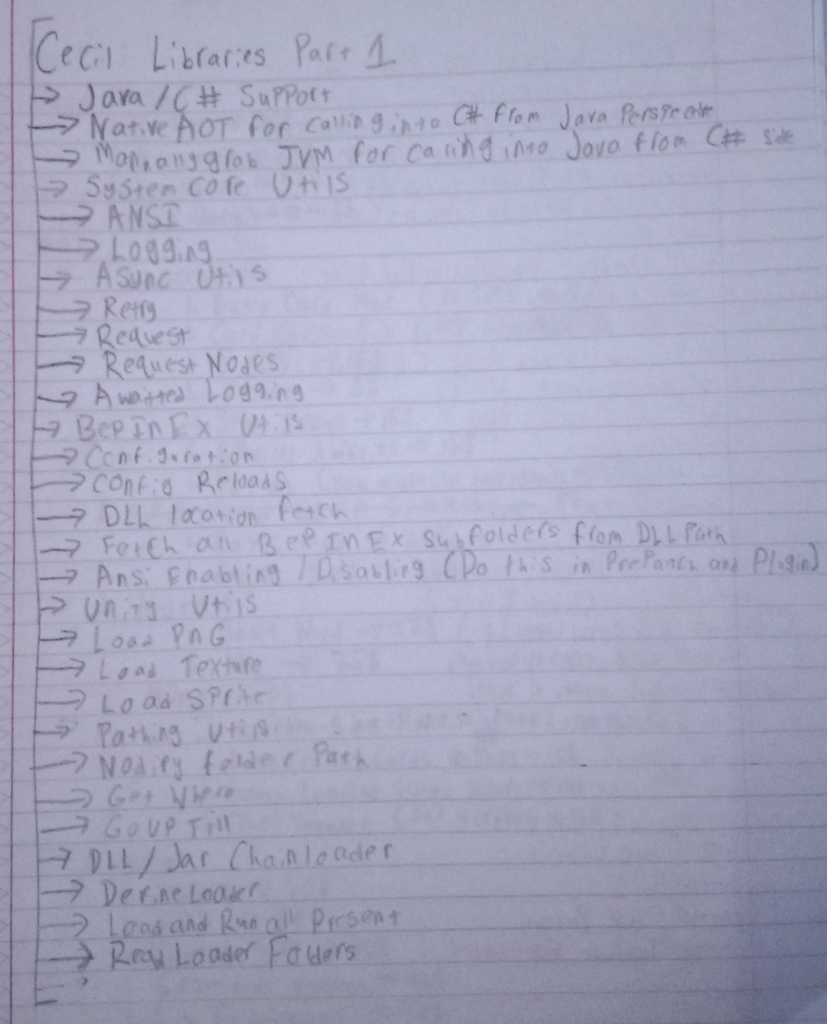 Cecil Libraries Part 1
→ Java / C# Support
→ Native AOT for calling into C# from Java Perspective
→ grab JVM for calling into Java from C# side
→ System Core Utils
→ ANSI
→ Logging
→ Async Utils
→ Retry
→ Request
→ Request Nodes
→ Awaited Logging
→ BepInEx Utils
→ Configuration
→ Config Reloads
→ DLL location fetch
→ Fetch all BepInEx subfolders from DLL Path
→ Ansi Enabling / Disabling (Do this in PrePatch and Plugin)
→ Unity Utils
→ Load PNG
→ Load Texture
→ Load Sprite
→ Pathing Utils
→ folder Path
→ Get Where
→ Go UP Till
→ DLL / Jar Chainloader
→ Define Loader
→ Load and Run all Present
→ Read Loader Folders